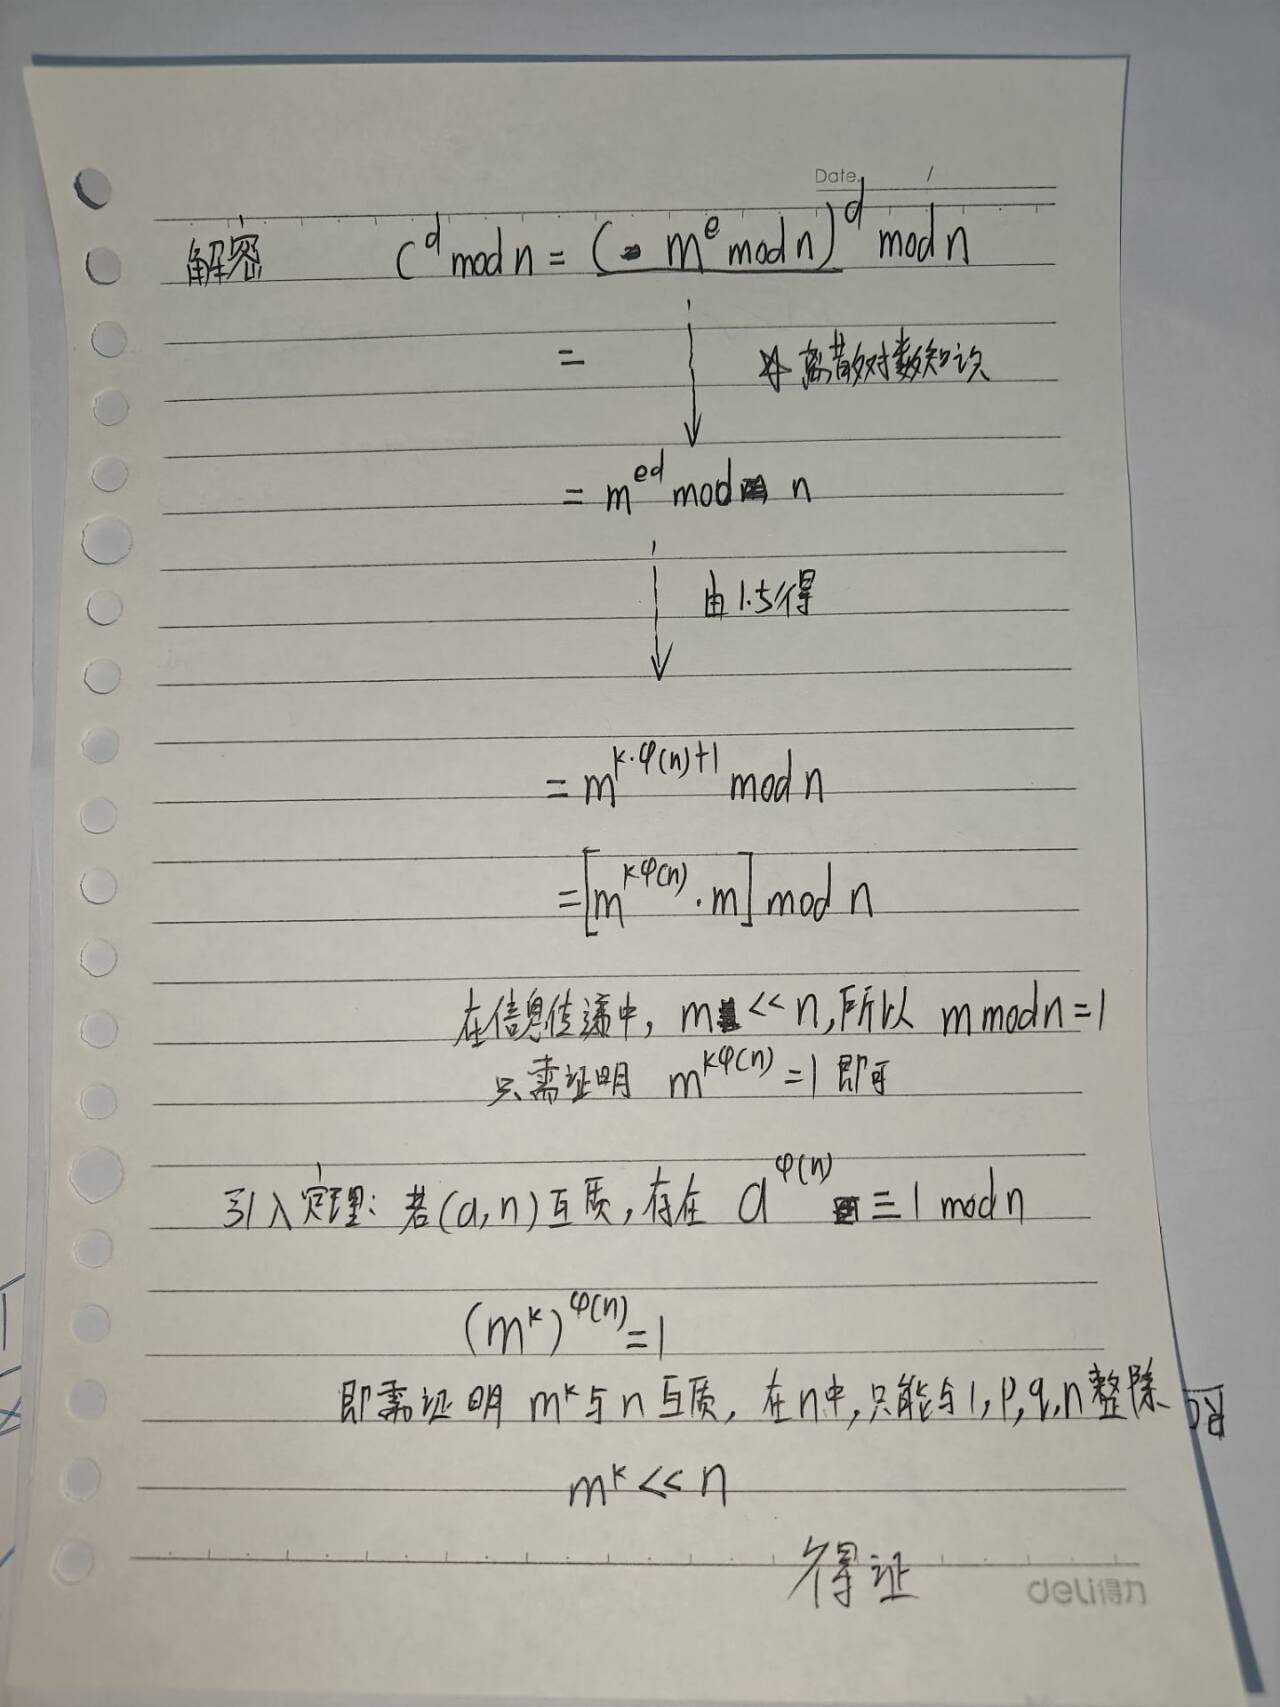 Date. /
解密 c^d mod n = (m^e mod n)^d mod n
= 离散对数知识
= m^{ed} mod n
由1.5得
= m^{k·φ(n)+1} mod n
= [m^{kφ(n)} · m] mod n
在信息传递中, m << n, 所以 m mod n = 1
只需证明 m^{kφ(n)} = 1 即可
引入定理: 若(a,n)互质, 存在 a^{φ(n)} ≡ 1 mod n
(m^k)^{φ(n)} = 1
即需证明 m^k 与 n 互质, 在n中, 只能与 1, p, q, n 整除
m^k << n
得证
deli得力